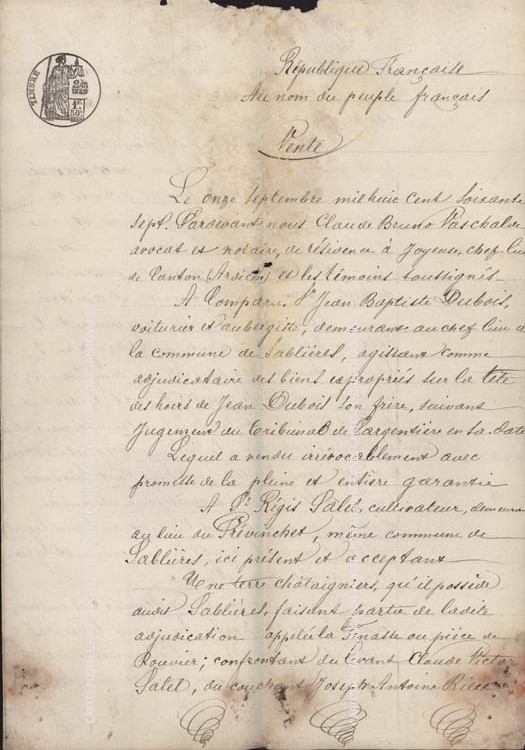 TIMBRE
2
1F
50c
République Française
Au nom du peuple français
Vente
Le onze septembre mil huit cent soixante
sept. Pardevant nous Claude Bruno Paschal de
avocat et notaire, de résidence à Joyeuse, chef lieu
de Canton (Ardèche) et les témoins soussignés
A Comparu, Sr Jean Baptiste Dubois,
voiturier et aubergiste, demeurant au chef lieu de
la commune de Sablières, agissant comme
adjudicataire des biens expropriés sur la tête
des hoirs de Jean Dubois son frère, suivant
Jugement du Tribunal de Largentière en sa date
Lequel a vendu irrévocablement avec
promesse de la pleine et entière garantie
A Sr Régis Salel, cultivateur, demeurant
au lieu du Prévinchet, même commune de
Sablières, ici présent et acceptant
Une terre châtaigniers, qu'il possède
audit Sablières, faisant partie de ladite
adjudication appelée la Tinasse ou pièce de
Rouvier; confrontant du levant Claude Victor
Salel, du couchant Joseph Antoine